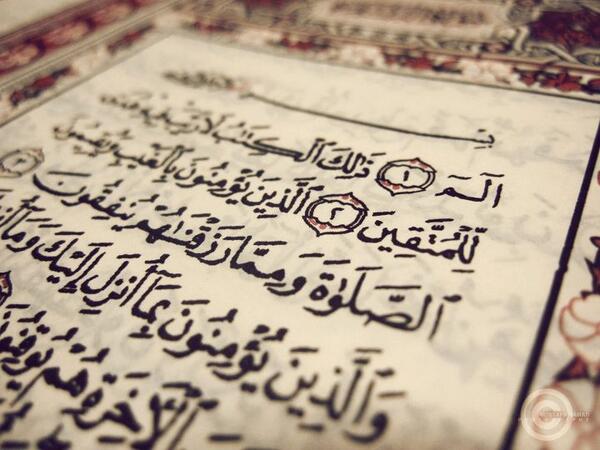 الٓمٓ ١ ذَٰلِكَ ٱلْكِتَٰبُ لَا رَيْبَ فِيهِ هُدًى
لِّلْمُتَّقِينَ ٢ ٱلَّذِينَ يُؤْمِنُونَ بِٱلْغَيْبِ وَيُقِيمُونَ
ٱلصَّلَوٰةَ وَمِمَّا رَزَقْنَٰهُمْ يُنفِقُونَ ٣
وَٱلَّذِينَ يُؤْمِنُونَ بِمَآ أُنزِلَ إِلَيْكَ وَمَآ
ٱلْأَخِرَةِ هُمْ